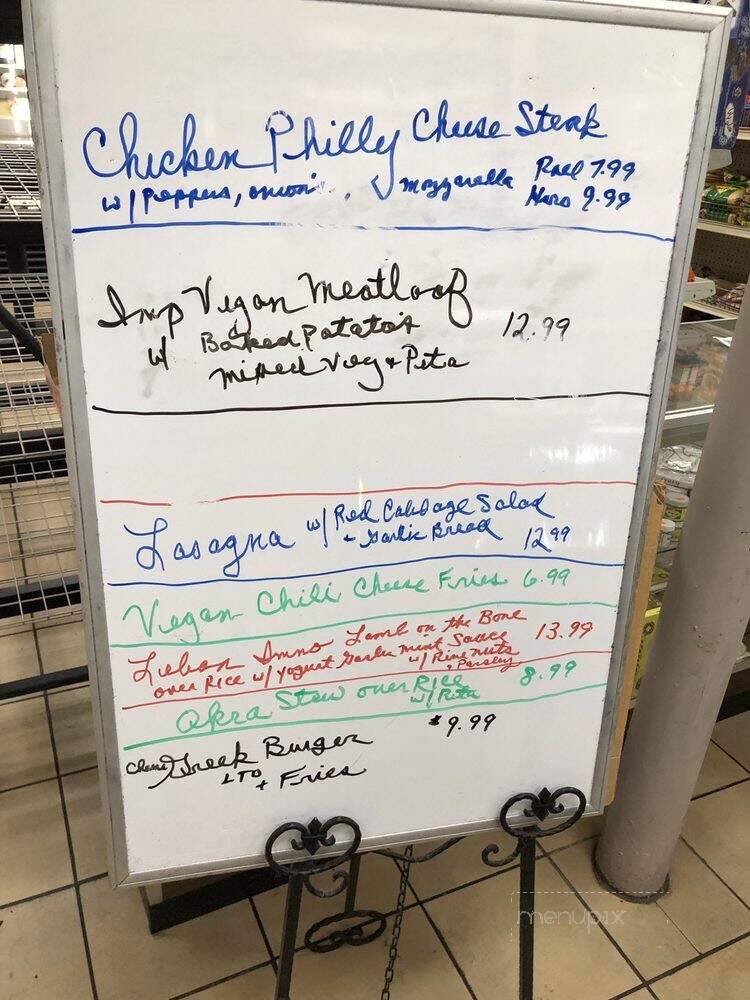 Chicken Philly Cheese Steak
w/ Peppers, onion, mozzarella Roll 7.99
Hero 9.99
Imp Vegan Meatloaf
w/ Baked Potatoes 12.99
mixed veg + Pita
Lasagna w/ Red Cabbage Salad
+ Garlic Bread 12.99
Vegan Chili Cheese Fries 6.99
Leban Immo Lamb on the Bone 13.99
over Rice w/ Yogurt Garlic mint Sauce
w/ Pine nuts
+ Parsley
Okra Stew over Rice 8.99
w/ Pita
Cheese Greek Burger $9.99
LTO
+ Fries
menupix